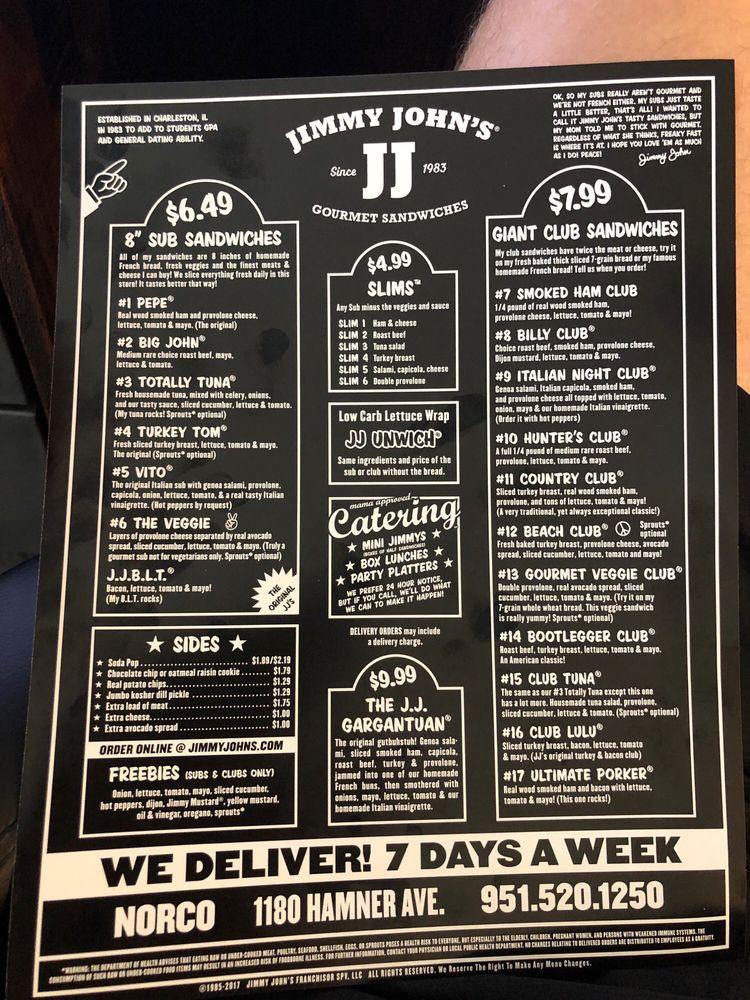 ESTABLISHED IN CHARLESTON, IL
IN 1983 TO ADD TO STUDENTS GPA
AND GENERAL DATING ABILITY.
JIMMY JOHN'S®
Since JJ 1983
GOURMET SANDWICHES
OK, SO MY SUBS REALLY AREN'T GOURMET AND
WE'RE NOT FRENCH EITHER. MY SUBS JUST TASTE
A LITTLE BETTER, THAT'S ALL! I WANTED TO
CALL IT JIMMY JOHN'S TASTY SANDWICHES, BUT
MY MOM TOLD ME TO STICK WITH GOURMET.
REGARDLESS OF WHAT SHE THINKS, FREAKY FAST
IS WHERE IT'S AT. I HOPE YOU LOVE 'EM AS MUCH
AS I DO! PEACE!
Jimmy John
$6.49
8" SUB SANDWICHES
All of my sandwiches are 8 inches of homemade
French bread, fresh veggies and the finest meats &
cheese I can buy! We slice everything fresh daily in this
store! It tastes better that way!
#1 PEPE®
Real wood smoked ham and provolone cheese,
lettuce, tomato & mayo. (The original)
#2 BIG JOHN®
Medium rare choice roast beef, mayo,
lettuce & tomato.
#3 TOTALLY TUNA®
Fresh housemade tuna, mixed with celery, onions,
and our tasty sauce, sliced cucumber, lettuce & tomato.
(My tuna rocks! Sprouts* optional)
#4 TURKEY TOM®
Fresh sliced turkey breast, lettuce, tomato & mayo.
The original (Sprouts* optional)
#5 VITO®
The original Italian sub with genoa salami, provolone,
capicola, onion, lettuce, tomato, & a real tasty Italian
vinaigrette. (Hot peppers by request)
#6 THE VEGGIE
Layers of provolone cheese separated by real avocado
spread, sliced cucumber, lettuce, tomato & mayo. (Truly a
gourmet sub not for vegetarians only. Sprouts* optional)
J.J.B.L.T.®
Bacon, lettuce, tomato & mayo!
(My B.L.T. rocks)
THE
ORIGINAL
JJ'S
★ SIDES ★
★ Soda Pop $1.89/$2.19
★ Chocolate chip or oatmeal raisin cookie $1.79
★ Real potato chips $1.29
★ Jumbo kosher dill pickle $1.29
★ Extra load of meat $1.75
★ Extra cheese $1.00
★ Extra avocado spread $1.00
ORDER ONLINE @ JIMMYJOHNS.COM
FREEBIES (SUBS & CLUBS ONLY)
Onion, lettuce, tomato, mayo, sliced cucumber,
hot peppers, dijon, Jimmy Mustard®, yellow mustard,
oil & vinegar, oregano, sprouts*
$4.99
SLIMS™
Any Sub minus the veggies and sauce
SLIM 1 Ham & cheese
SLIM 2 Roast beef
SLIM 3 Tuna salad
SLIM 4 Turkey breast
SLIM 5 Salami, capicola, cheese
SLIM 6 Double provolone
Low Carb Lettuce Wrap
JJ UNWICH®
Same ingredients and price of the
sub or club without the bread.
mama approved
Catering
★ MINI JIMMYS ★
(BOXES OF HALF SANDWICHES)
★ BOX LUNCHES ★
★ PARTY PLATTERS ★
WE PREFER 24 HOUR NOTICE,
BUT IF YOU CALL, WE'LL DO WHAT
WE CAN TO MAKE IT HAPPEN!
DELIVERY ORDERS may include
a delivery charge.
$9.99
THE J.J.
GARGANTUAN®
The original gutbuhstuh! Genoa sala-
mi, sliced smoked ham, capicola,
roast beef, turkey & provolone,
jammed into one of our homemade
French buns, then smothered with
onions, mayo, lettuce, tomato & our
homemade Italian vinaigrette.
$7.99
GIANT CLUB SANDWICHES
My club sandwiches have twice the meat or cheese, try it
on my fresh baked thick sliced 7-grain bread or my famous
homemade French bread! Tell us when you order!
#7 SMOKED HAM CLUB
1/4 pound of real wood smoked ham,
provolone cheese, lettuce, tomato & mayo!
#8 BILLY CLUB®
Choice roast beef, smoked ham, provolone cheese,
Dijon mustard, lettuce, tomato & mayo.
#9 ITALIAN NIGHT CLUB®
Genoa salami, Italian capicola, smoked ham,
and provolone cheese all topped with lettuce, tomato,
onion, mayo & our homemade Italian vinaigrette.
(Order it with hot peppers)
#10 HUNTER'S CLUB®
A full 1/4 pound of medium rare roast beef,
provolone, lettuce, tomato & mayo.
#11 COUNTRY CLUB®
Sliced turkey breast, real wood smoked ham,
provolone, and tons of lettuce, tomato & mayo!
(A very traditional, yet always exceptional classic!)
#12 BEACH CLUB® Sprouts* optional
Fresh baked turkey breast, provolone cheese, avocado
spread, sliced cucumber, lettuce, tomato and mayo!
#13 GOURMET VEGGIE CLUB®
Double provolone, real avocado spread, sliced
cucumber, lettuce, tomato & mayo. (Try it on my
7-grain whole wheat bread. This veggie sandwich
is really yummy! Sprouts* optional)
#14 BOOTLEGGER CLUB®
Roast beef, turkey breast, lettuce, tomato & mayo.
An American classic!
#15 CLUB TUNA®
The same as our #3 Totally Tuna except this one
has a lot more. Housemade tuna salad, provolone,
sliced cucumber, lettuce & tomato. (Sprouts* optional)
#16 CLUB LULU®
Sliced turkey breast, bacon, lettuce, tomato
& mayo. (JJ's original turkey & bacon club)
#17 ULTIMATE PORKER®
Real wood smoked ham and bacon with lettuce,
tomato & mayo! (This one rocks!)
WE DELIVER! 7 DAYS A WEEK
NORCO 1180 HAMNER AVE. 951.520.1250
*WARNING: THE DEPARTMENT OF HEALTH ADVISES THAT EATING RAW OR UNDER-COOKED MEAT, POULTRY, SEAFOOD, SHELLFISH, EGGS, OR SPROUTS POSES A HEALTH RISK TO EVERYONE, BUT ESPECIALLY TO THE ELDERLY, CHILDREN, PREGNANT WOMEN, AND PERSONS WITH WEAKENED IMMUNE SYSTEMS. THE
CONSUMPTION OF SUCH RAW OR UNDER-COOKED FOOD ITEMS MAY RESULT IN AN INCREASED RISK OF FOODBORNE ILLNESS. FOR FURTHER INFORMATION, CONTACT YOUR PHYSICIAN OR LOCAL PUBLIC HEALTH DEPARTMENT. NO CHARGES RELATING TO DELIVERED ORDERS ARE DISTRIBUTED TO EMPLOYEES AS A GRATUITY.
©1985-2017 JIMMY JOHN'S FRANCHISOR SPV, LLC ALL RIGHTS RESERVED. We Reserve The Right To Make Any Menu Changes.